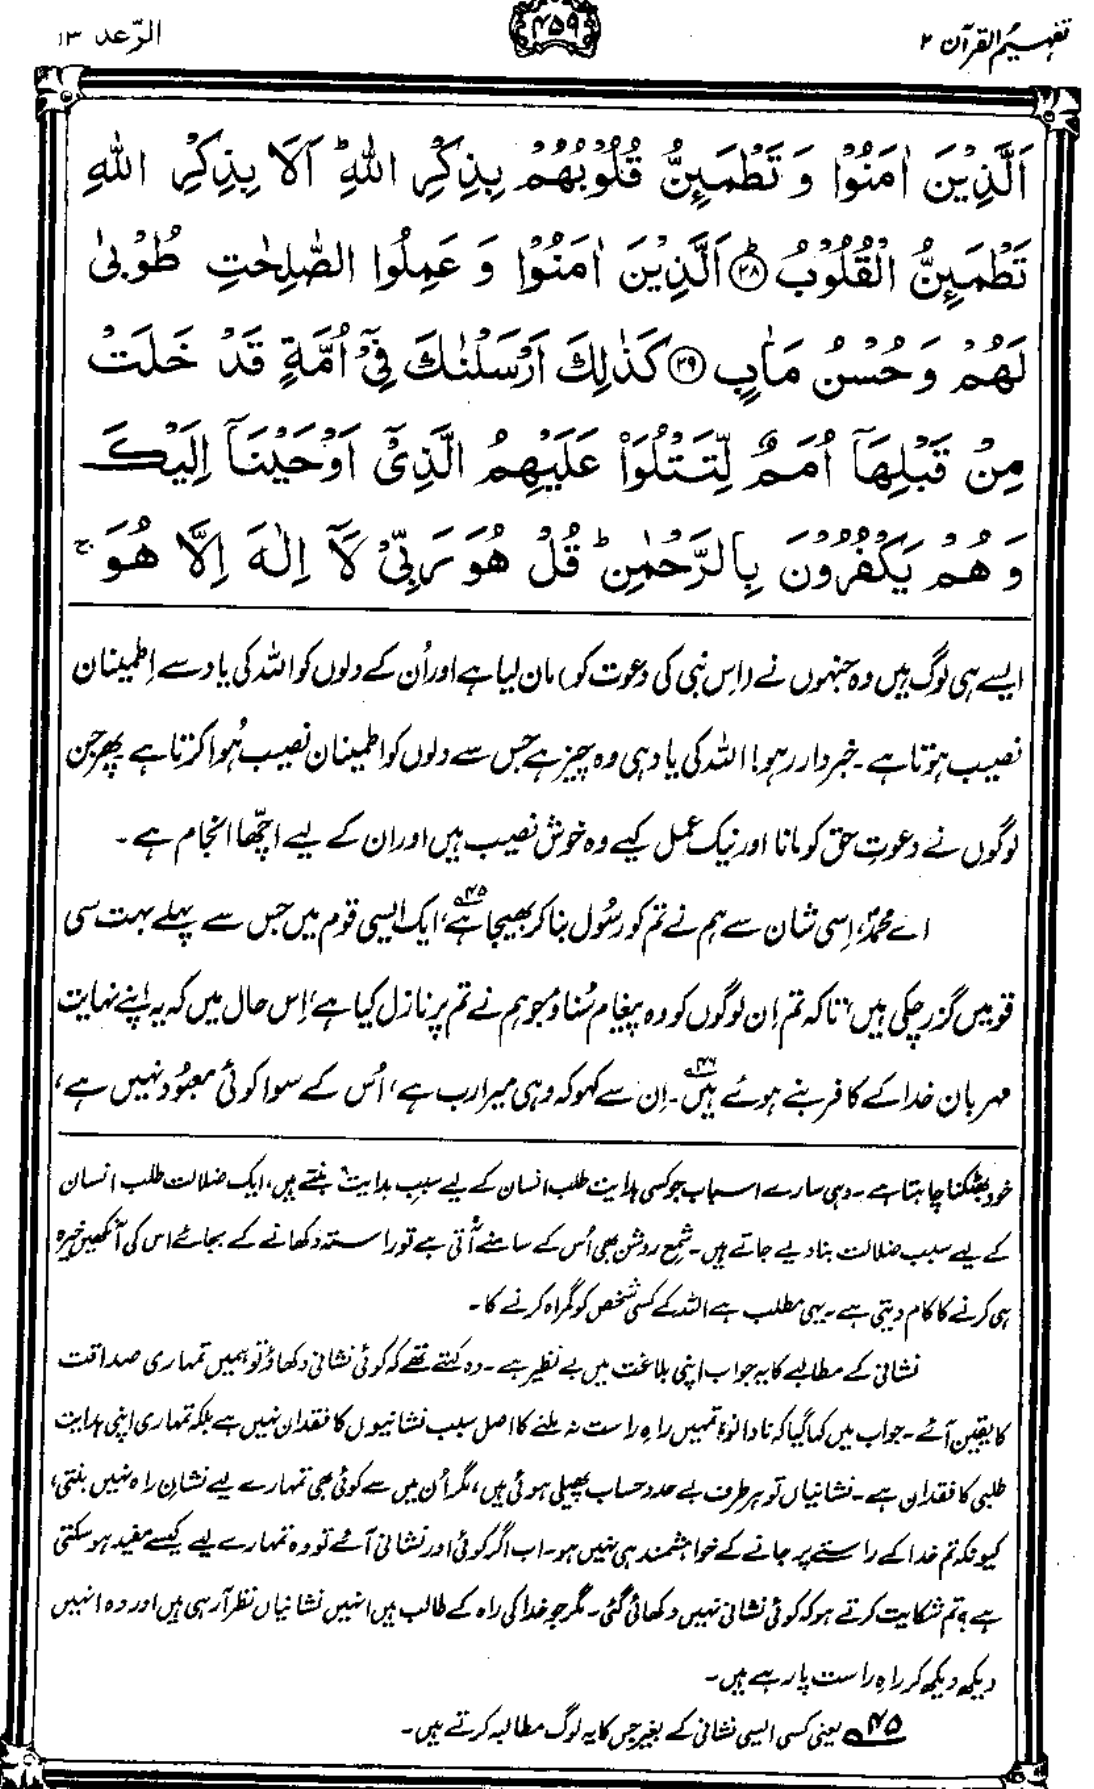 تفہیم القرآن ۲
۴۵۹
الرّعد ۱۳
اَلَّذِيْنَ اٰمَنُوْا وَ تَطْمَىِٕنُّ قُلُوْبُهُمْ بِذِكْرِ اللّٰهِ ؕ اَلَا بِذِكْرِ اللّٰهِ
تَطْمَىِٕنُّ الْقُلُوْبُ ؕ۝۲۸ اَلَّذِيْنَ اٰمَنُوْا وَ عَمِلُوا الصّٰلِحٰتِ طُوْبٰى
لَهُمْ وَ حُسْنُ مَاٰبٍ ۝۲۹ كَذٰلِكَ اَرْسَلْنٰكَ فِيْۤ اُمَّةٍ قَدْ خَلَتْ
مِنْ قَبْلِهَاۤ اُمَمٌ لِّتَتْلُوَاۡ عَلَيْهِمُ الَّذِيْۤ اَوْحَيْنَاۤ اِلَيْكَ
وَ هُمْ يَكْفُرُوْنَ بِالرَّحْمٰنِ ؕ قُلْ هُوَ رَبِّيْ لَاۤ اِلٰهَ اِلَّا هُوَ ۚ
ایسے ہی لوگ ہیں وہ جنہوں نے (اِس نبی کی دعوت کو) مان لیا ہے اور اُن کے دلوں کو اللہ کی یاد سے اِطمینان
نصیب ہوتا ہے۔ خبردار رہو! اللہ کی یاد ہی وہ چیز ہے جس سے دلوں کو اطمینان نصیب ہُوا کرتا ہے پھر جن
لوگوں نے دعوتِ حق کو مانا اور نیک عمل کیے وہ خوش نصیب ہیں اور ان کے لیے اچھّا انجام ہے۔
اے محمدؐ، اِسی شان سے ہم نے تم کو رسُول بنا کر بھیجا ہے۴۵، ایک ایسی قوم میں جس سے پہلے بہت سی
قومیں گزر چکی ہیں، تاکہ تم اِن لوگوں کو وہ پیغام سُناؤ جو ہم نے تم پر نازل کیا ہے، اِس حال میں کہ یہ اپنے نہایت
مہربان خدا کے کافر بنے ہوئے ہیں۴۶۔ اِن سے کہو کہ وہی میرا رب ہے، اُس کے سوا کوئی معبُود نہیں ہے،
خود بھٹکنا چاہتا ہے۔ وہی سارے اسباب جو کسی ہدایت طلب انسان کے لیے سببِ ہدایت بنتے ہیں، ایک ضلالت طلب انسان
کے لیے سبب ضلالت بنا دیے جاتے ہیں۔ شمع روشن بھی اُس کے سامنے آتی ہے تو راستہ دکھانے کے بجائے اس کی آنکھیں خیرہ
ہی کرنے کا کام دیتی ہے۔ یہی مطلب ہے اللہ کے کسی شخص کو گمراہ کرنے کا۔
نشانی کے مطالبے کا یہ جواب اپنی بلاغت میں بے نظیر ہے۔ وہ کہتے تھے کہ کوئی نشانی دکھاؤ تو ہمیں تمہاری صداقت
کا یقین آئے۔ جواب میں کہا گیا کہ نادانو، تمہیں راہِ راست نہ ملنے کا اصل سبب نشانیوں کا فقدان نہیں ہے بلکہ تمہاری اپنی ہدایت
طلبی کا فقدان ہے۔ نشانیاں تو ہر طرف بے حد و حساب پھیلی ہوئی ہیں، مگر اُن میں سے کوئی بھی تمہارے لیے نشانِ راہ نہیں بنتی،
کیونکہ تم خدا کے راستے پر جانے کے خواہشمند ہی نہیں ہو۔ اب اگر کوئی اور نشانی آئے تو وہ تمہارے لیے کیسے مفید ہو سکتی
ہے؟ تم شکایت کرتے ہو کہ کوئی نشانی نہیں دکھائی گئی۔ مگر جو خدا کی راہ کے طالب ہیں انہیں نشانیاں نظر آرہی ہیں اور وہ انہیں
دیکھ دیکھ کر راہِ راست پا رہے ہیں۔
۴۵ یعنی کسی ایسی نشانی کے بغیر جس کا یہ لوگ مطالبہ کرتے ہیں۔